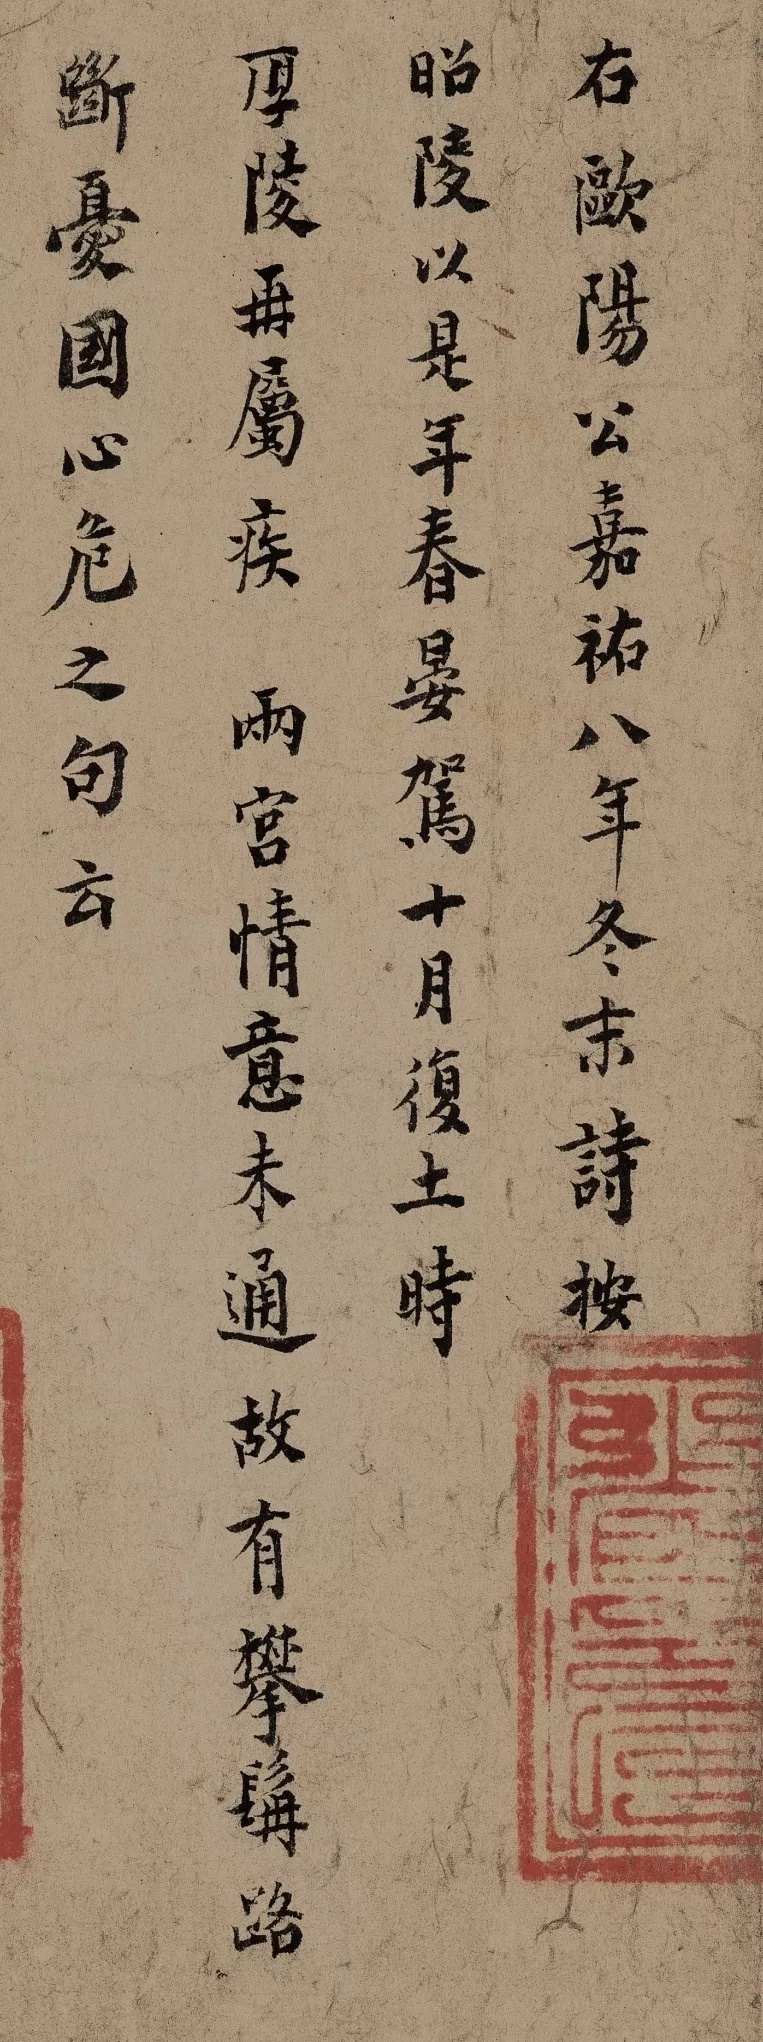 右歐陽公嘉祐八年冬末詩按
昭陵以是年春晏駕十月復土時
厚陵再屬疾 兩宮情意未通故有攀髯路
斷憂國心危之句云